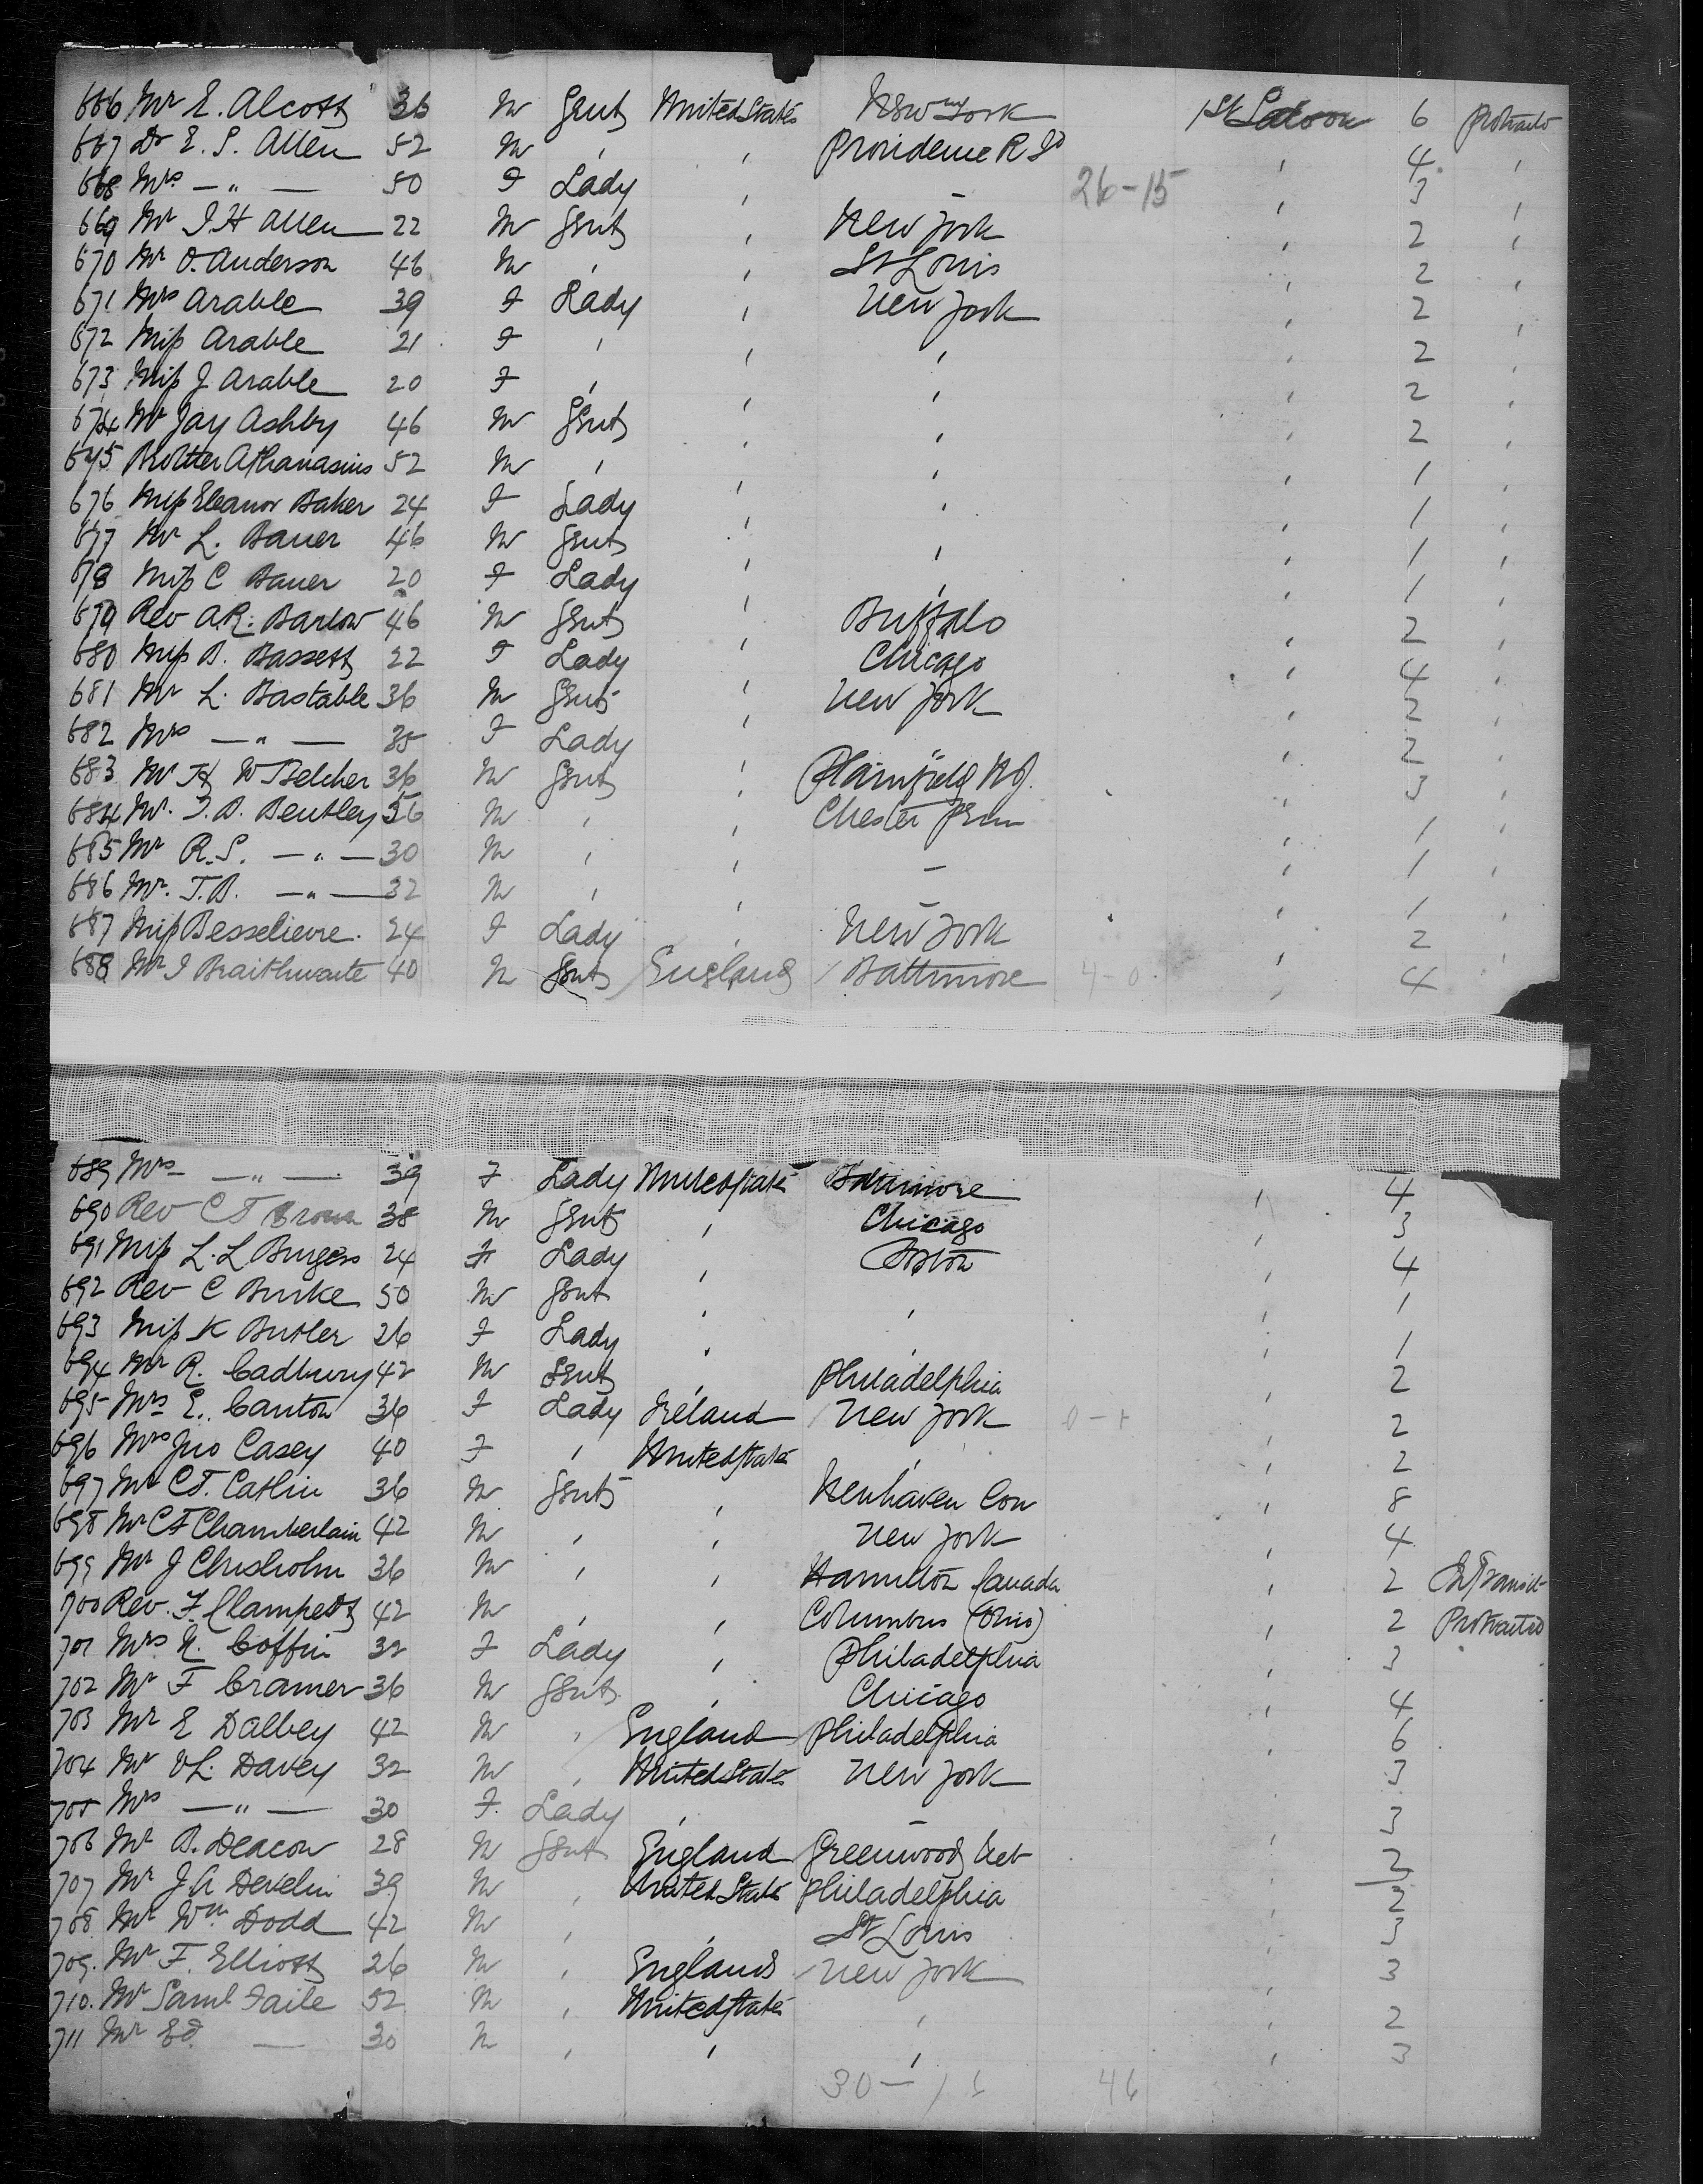 666 Mr E. Alcott 36 M Gent United States New York 1st Saloon 6 protracted
667 Dr E. S. Allen 52 M " " Providence R Id " 4 "
668 Mrs — " — 50 F Lady " - 26-15 " 3 "
669 Mr J H Allen 22 M Gent " New York " 2 "
670 Mr O. Anderson 46 M " " St Louis " 2 "
671 Mrs Arable 39 F Lady " New York " 2 "
672 Miss Arable 21 F " " " " 2 "
673 Miss J Arable 20 F " " " " 2 "
674 Mr Jay Ashby 46 M Gent " " " 2 "
675 Brother Athanasius 52 M " " " " 1 "
676 Miss Eleanor Baker 24 F Lady " " " 1 "
677 Mr L. Bauer 46 M Gent " " " 1 "
678 Miss C Bauer 20 F Lady " " " 1 "
679 Rev A.R. Barlow 46 M Gent " Buffalo " 2 "
680 Miss B. Bassett 22 F Lady " Chicago " 4 "
681 Mr L. Bastable 36 M Gent " New York " 2 "
682 Mrs — " — 35 F Lady " " 2 "
683 Mr H W Belcher 36 M Gent " Plainfield N J. " 3 "
684 Mr. J. B. Bentley 56 M " " Chester Penn " 1 "
685 Mr R. S. — " — 30 M " " - " 1 "
686 Mr. T. B. — " — 32 M " " - " 1 "
687 Miss Besselievre. 24 F Lady " New York " 2 "
688 Mr J Braithwaite 40 M Gent England Baltimore 4-0 " 4
689 Mrs — " — 39 F Lady United States Baltimore " 4
690 Rev C F Brown 38 M Gent " Chicago " 3
691 Miss L. L Burgess 24 F Lady " Boston " 4
692 Rev C Burke 50 M Gent " " " 1
693 Miss K Butler 26 F Lady " " " 1
694 Mr R. Cadbury 42 M Gent " Philadelphia " 2
695 Mrs E. Canton 36 F Lady Ireland New York " 2
696 Mrs Jno Casey 40 F " United States " " 2
697 Mr C F. Catlin 36 M Gent " Newhaven Con " 8
698 Mr C F Chamberlain 42 M " " New York " 4
699 Mr J Chisholm 36 M " " Hamilton Canada " 2 In Transit
700 Rev. F. Clampett 42 M " " Columbus (Ohio) " 2 Protracted
701 Mrs N. Coffin 32 F Lady " Philadelphia " 3
702 Mr F Cramer 36 M Gent " Chicago " 4
703 Mr E Dalbey 42 M " England Philadelphia " 6
704 Mr V L. Davey 32 M " United States New York " 3
705 Mrs — " — 30 F. Lady " - " 3
706 Mr B. Deacon 28 M Gent England Greenwood Neb " 2
707 Mr J A Develin 39 M " United States Philadelphia " 2
708 Mr Wm Dodd 42 M " " St Louis " 3
709. Mr F. Elliott 26 M " England New York " 3
710. Mr Saml Faile 52 M " United States " " 2
711 Mr Ed. — 30 M " " " " 3
30 — 46